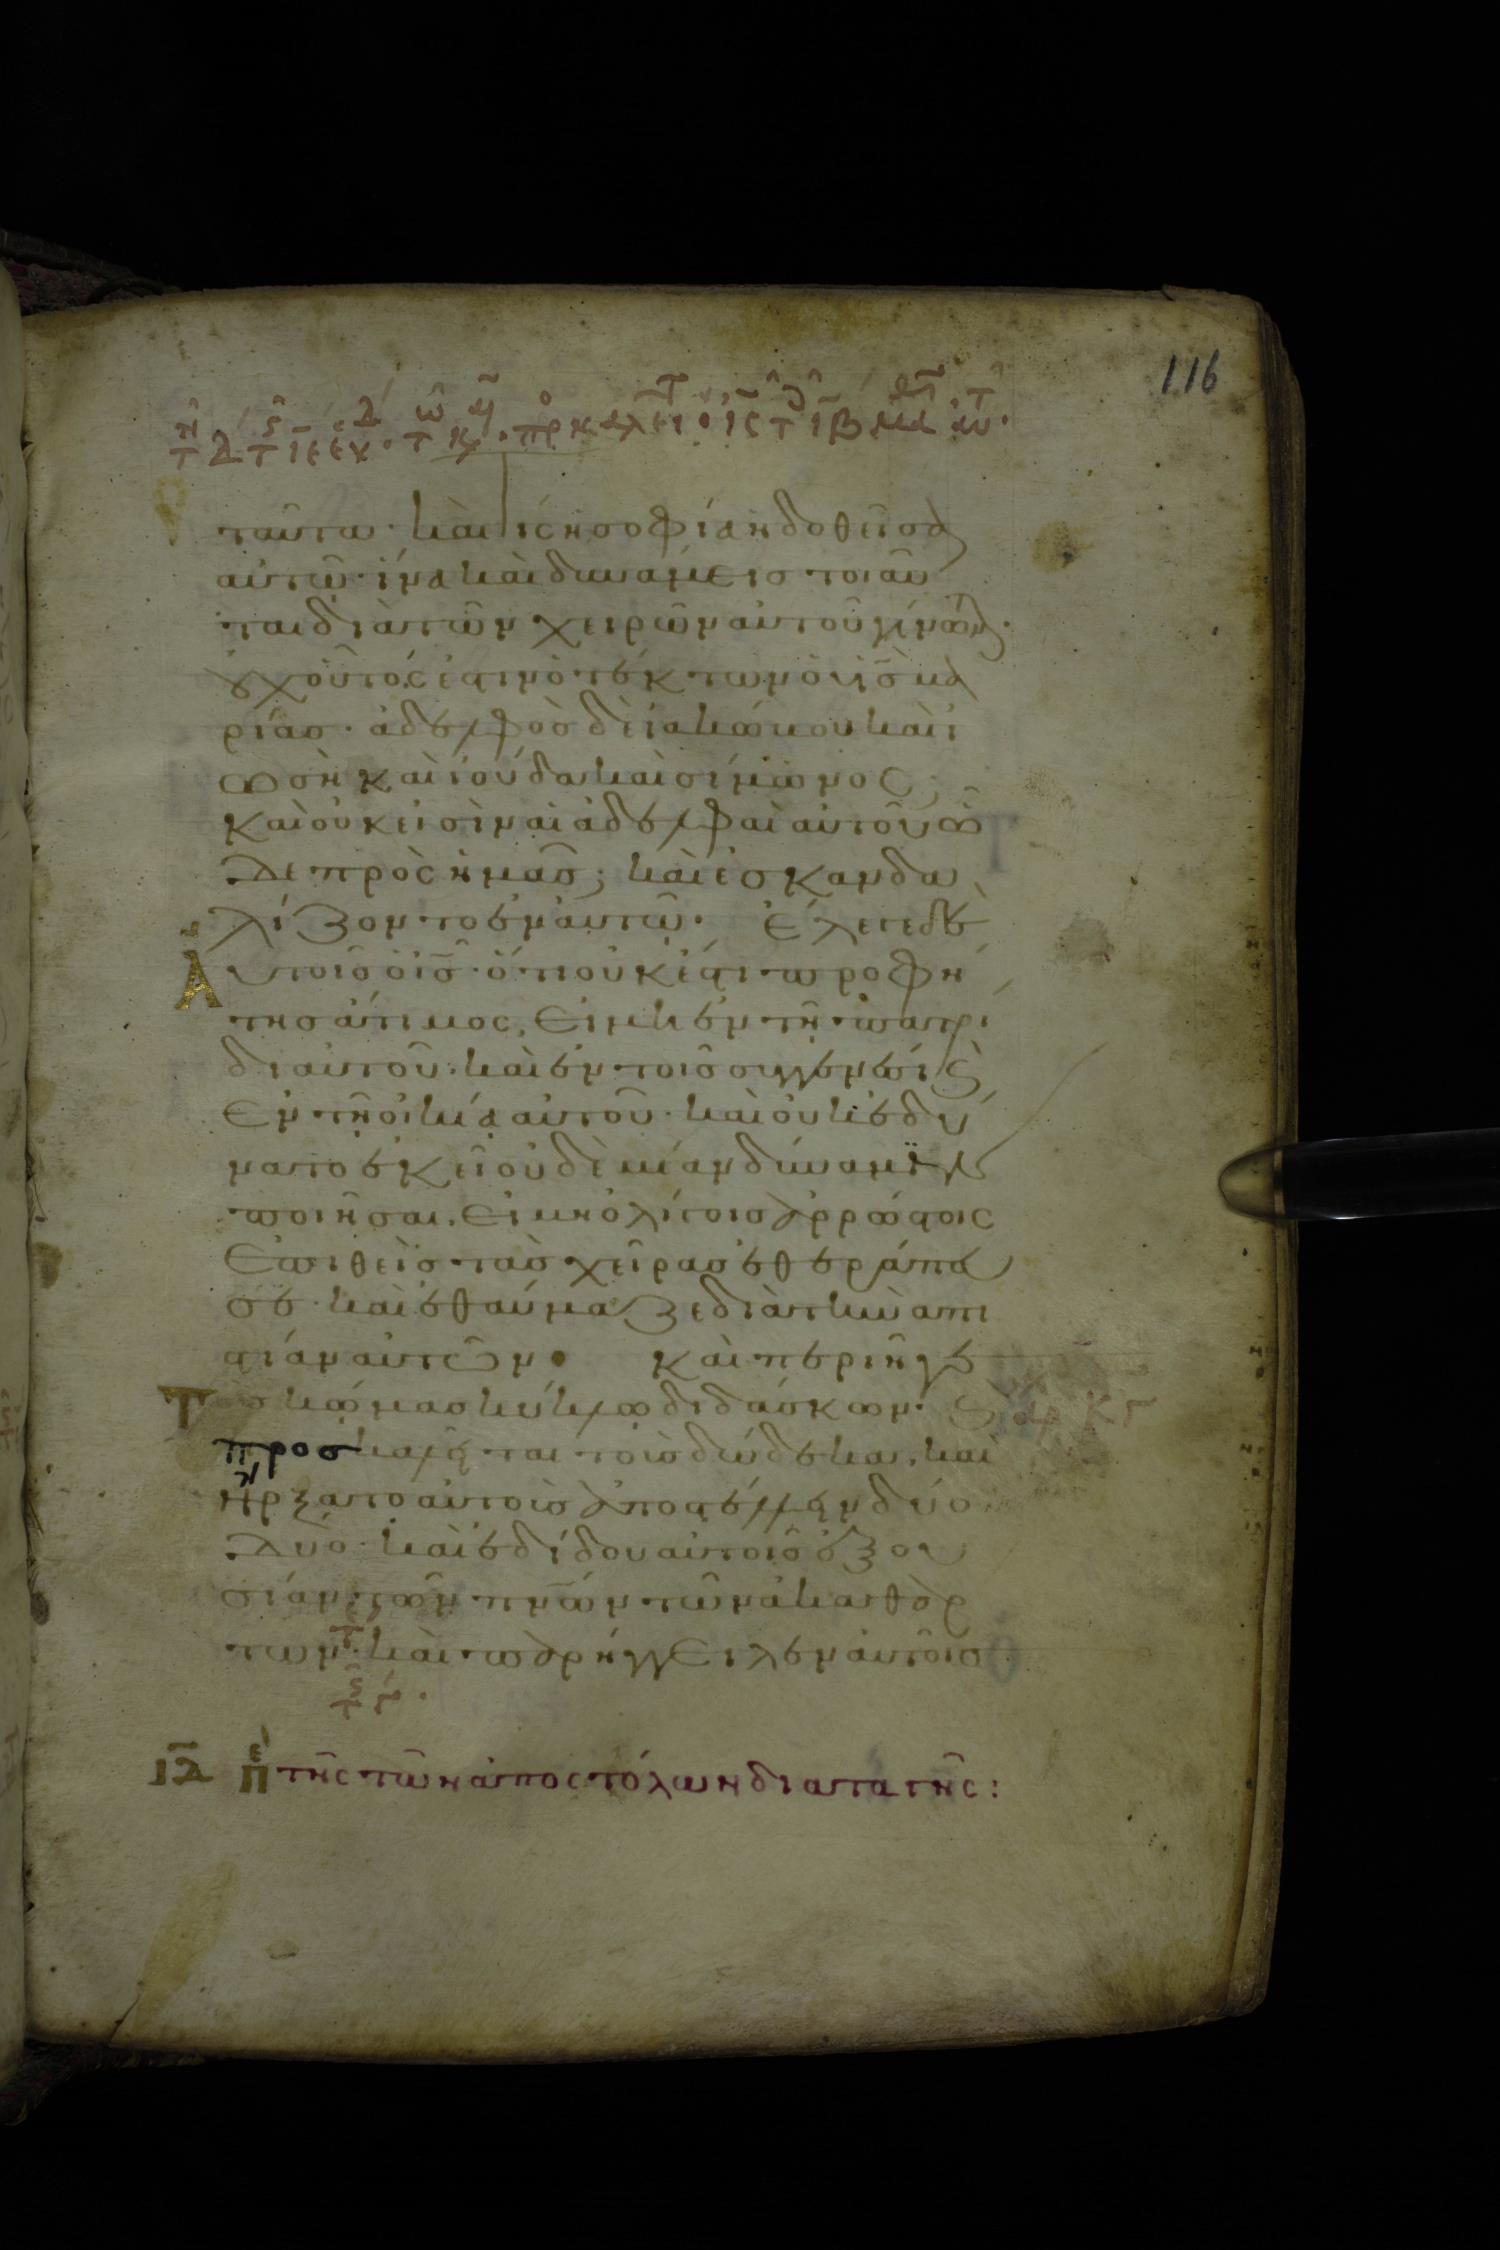 116
ταῦτα · καὶ τίς ἡ σοφία ἡ δοθεῖσα
αὐτῶ · ἵνα καὶ δυνάμεις τοιαῦ
ται διὰ τῶν χειρῶν αὐτοῦ γίνωνται ·
οὐχ οὗτός ἐστιν ὁ τέκτων ὁ υἱς μα
ρίας · ἀδελφὸς δὲ ἰακώβου καὶ ἰ
ωσῆ καὶ ἰούδα καὶ σίμωνος ;
καὶ οὐκ εἰσὶν αἱ ἀδελφαὶ αὐτοῦ ὧ
δε πρὸς ἡμᾶς ; καὶ ἐσκανδα
λίζοντο ἐν αὐτῶ · ἔλεγε δὲ
αὐτοῖς ὁ ις · ὅτι οὐκ ἔστι προφή
της ἄτιμος, εἰ μὴ ἐν τῆ πατρί
δι αὐτοῦ · καὶ ἐν τοῖς συγγενέσι καὶ
ἐν τῆ οἰκία αὐτοῦ · καὶ οὐκ ἐδύ
νατο ἐκεῖ οὐδὲ μίαν δύναμιν
ποιῆσαι, εἰ μὴ ὀλίγοις ἀρρώστοις
ἐπιθεὶς τὰς χεῖρας ἐθεράπευ
σε · καὶ ἐθαύμαζε διὰ τὴν ἀπι
στίαν αὐτῶν · καὶ περιῆγε
τὰς κώμας κύκλω διδάσκων · καὶ
προσκαλεῖται τοὺς δώδεκα, καὶ
ἤρξατο αὐτοὺς ἀποστέλλειν δύο
δύο · καὶ ἐδίδου αὐτοῖς ἐξου
σίαν τῶν πνῶν τῶν ἀκαθάρ
των · καὶ παρήγγειλεν αὐτοῖς
ΙΔ Πε τῆς τῶν ἀποστόλων διαταγῆς :